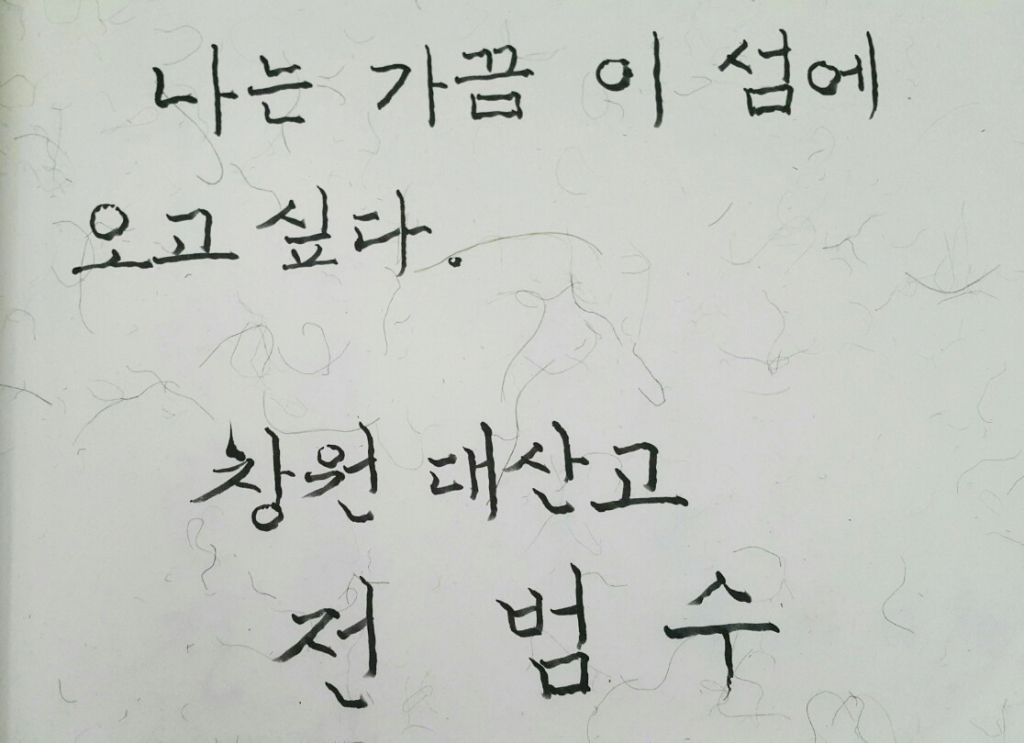 나는 가끔 이 섬에
오고 싶다.
창원 대산고
전 범 수